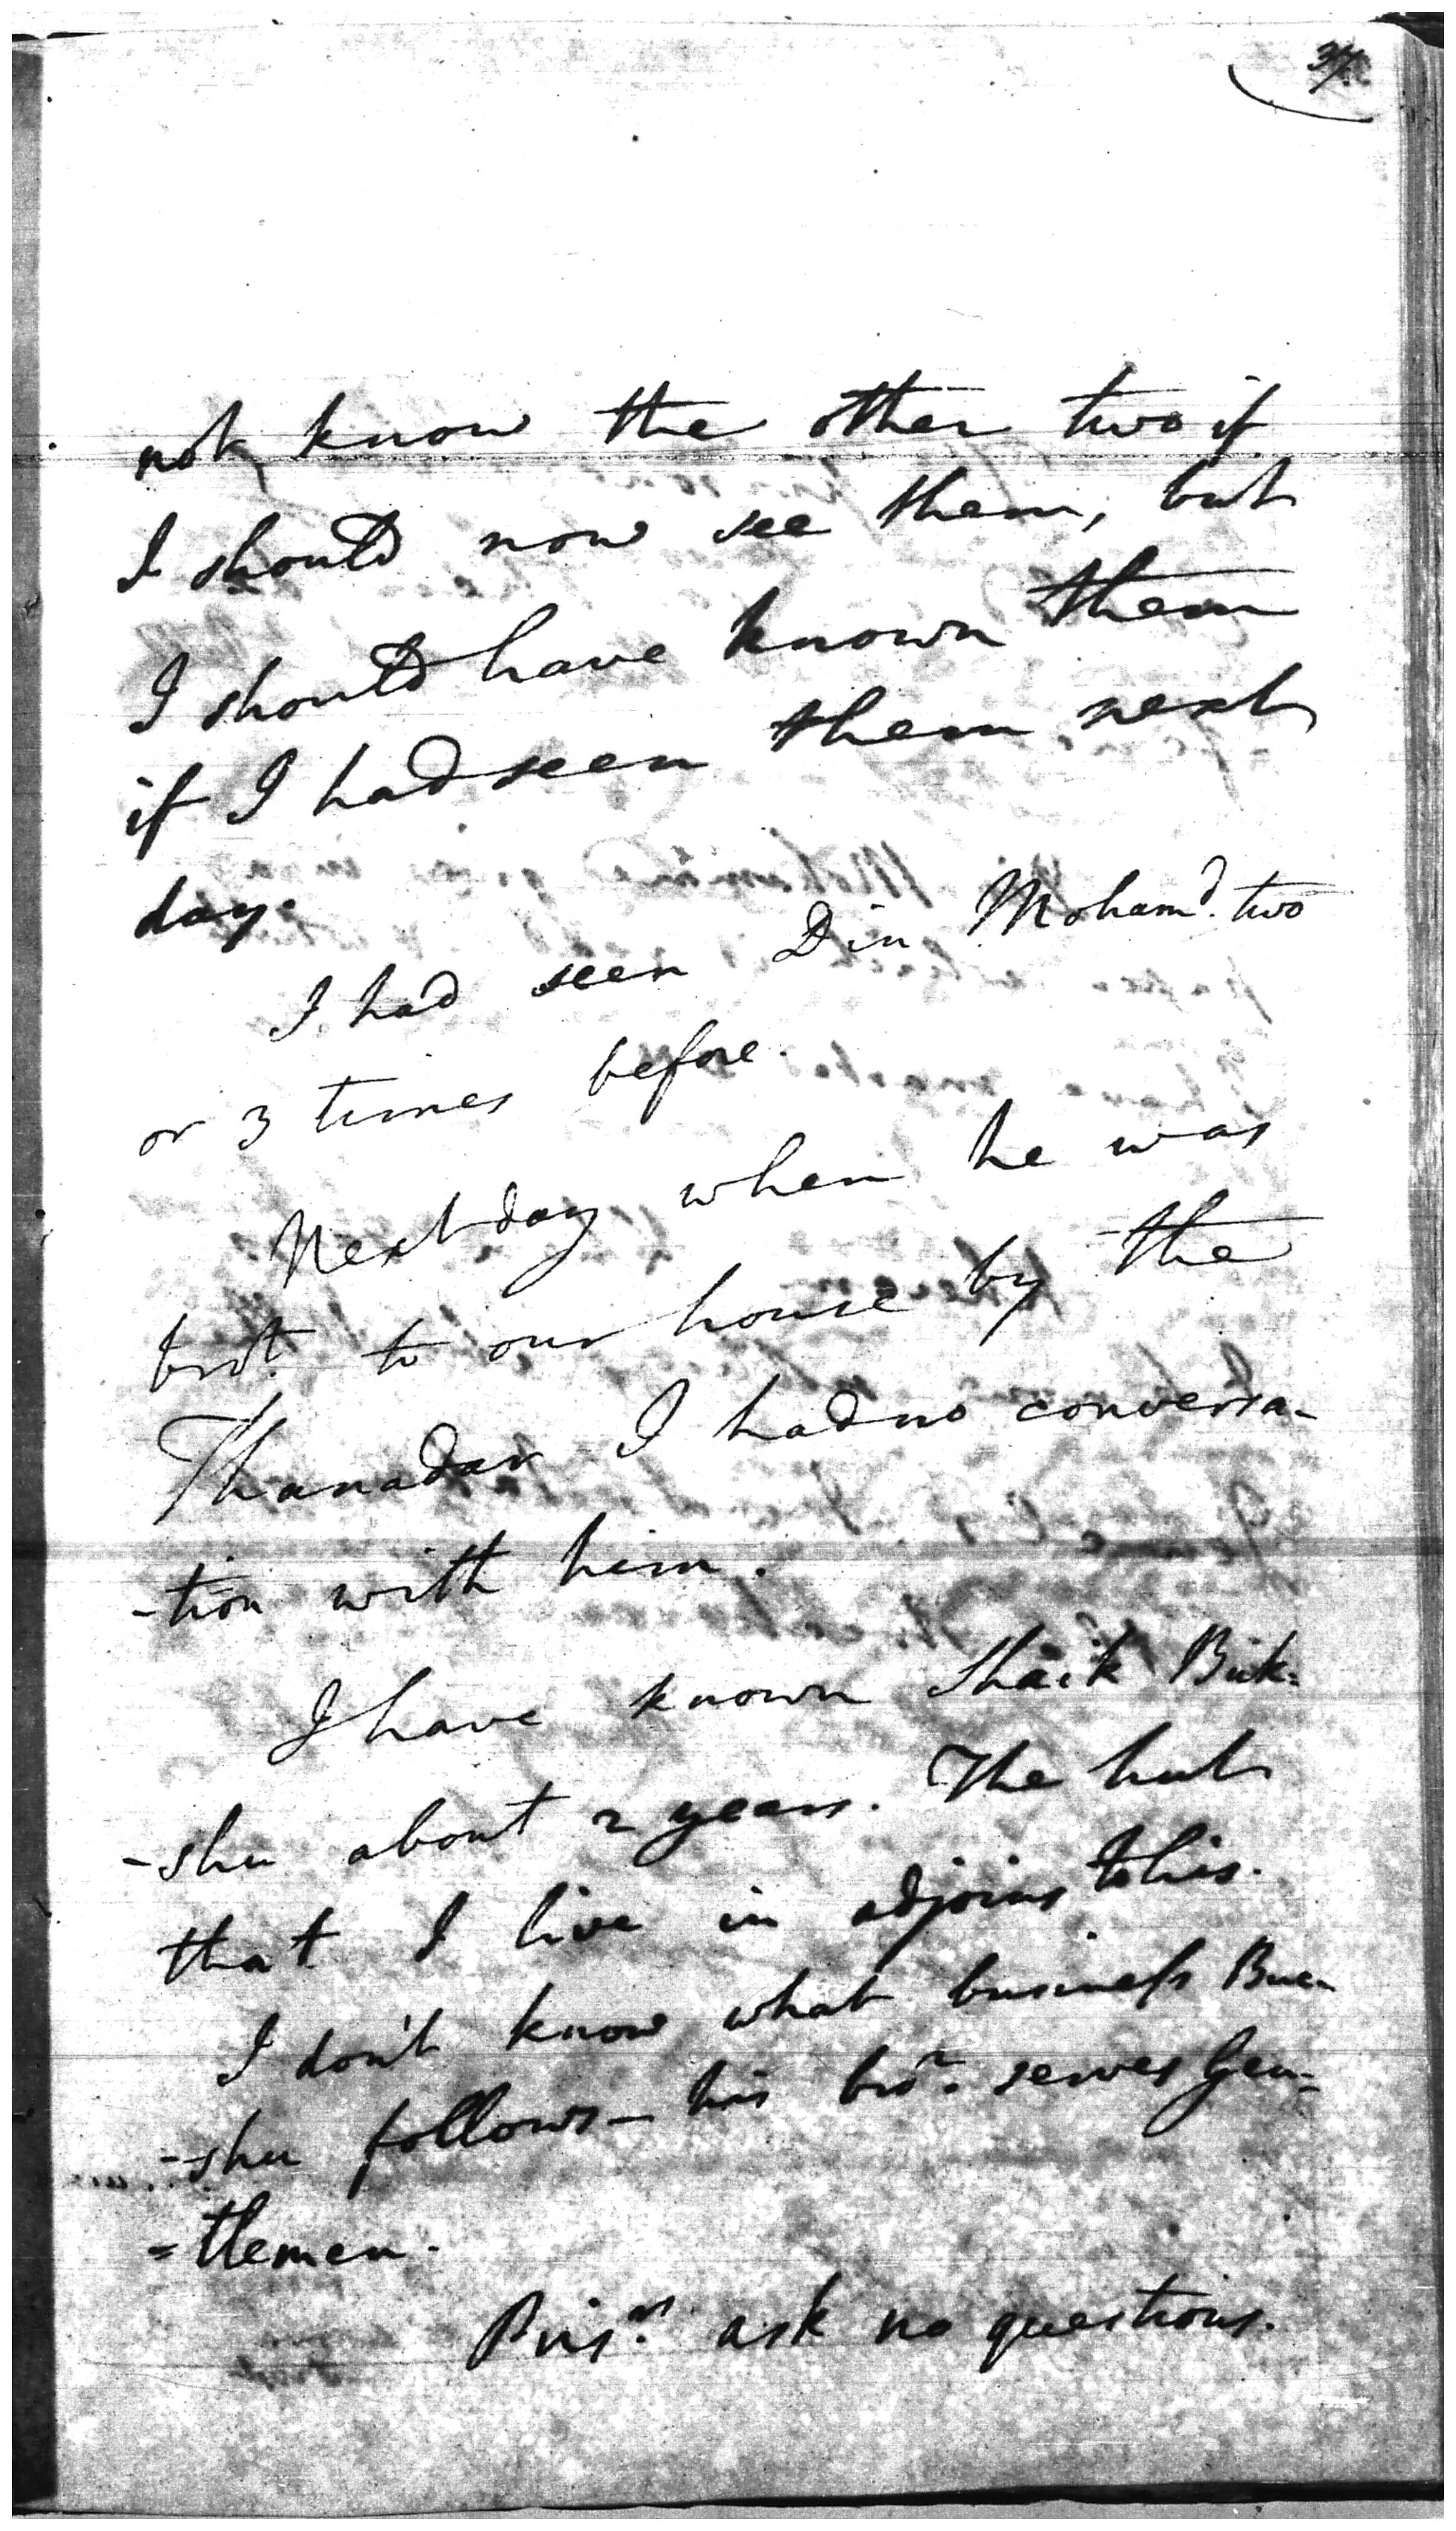 37.
not know the other two if
I should now see them, but
I should have known them
if I had seen them next
day.
I had seen Din Moham^d. two
or 3 times before.
Next day when he was
bro^t. to our house by the
Thanadar I had no conversa-
-tion with him.
I have known Shaik Buk=
-shu about 2 years. The hut
that I live in adjoins to his.
I don't know what business Buc-
-shu follows - his bro^r. serves Gen-
=tlemen.
Pris^rs. ask no questions.